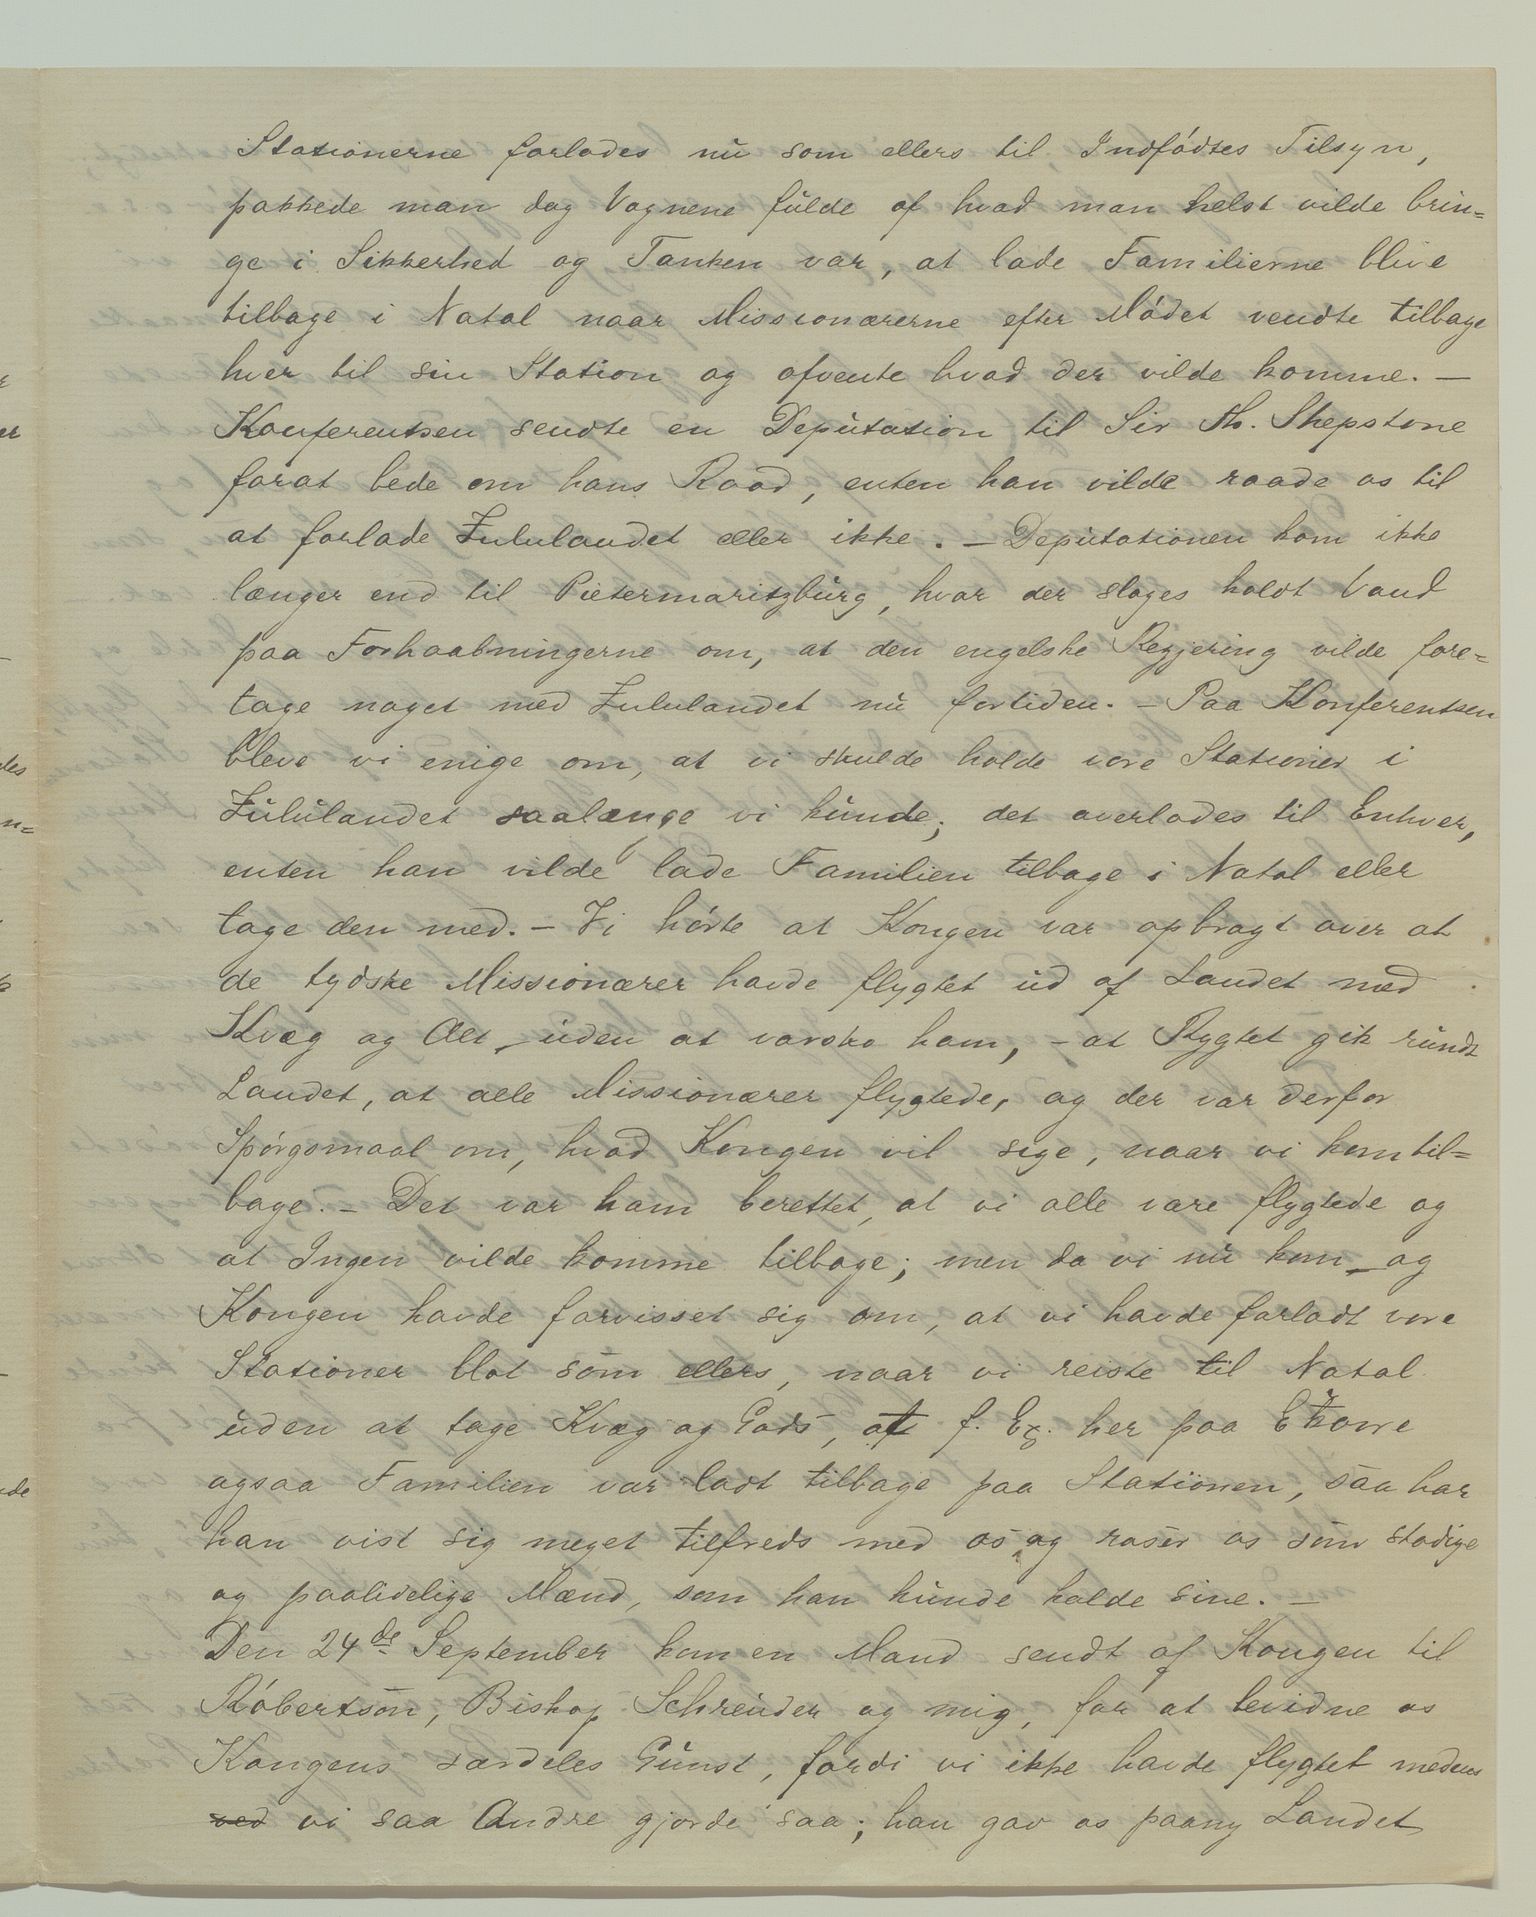 Stationerne forlodes nu som ellers til Indfødtes Tilsyn,
pakkede man dog Vognene fulde af hvad man helst vilde brin=
ge i Sikkerhed og Tanken var, at lade Familierne blive
tilbage i Natal naar Missionærerne efter Mødet vendte tilbage
hver til sin Station og afvente hvad der vilde komme. —
Konferentsen sendte en Deputation til Sir Th. Shepstone
forat bede om hans Raad, enten han vilde raade os til
at forlade Zululandet eller ikke. — Deputationen kom ikke
længer end til Pietermaritzburg, hvor der sloges koldt Vand
paa Forhaabningerne om, at den engelske Regjering vilde fore=
tage noget med Zululandet nu fortiden. — Paa Konferentsen
bleve vi enige om, at vi skulde holde vore Stationer i
Zululandet saalænge vi kunde; det overlodes til Enhver,
enten han vilde lade Familien tilbage i Natal eller
tage den med. — Vi hørte at Kongen var opbragt over at
de tydske Missionærer havde flygtet ud af Landet med
Kvæg og Alt – uden at varsko ham, – at Rygtet gik rundt
Landet, at alle Missionærer flygtede, og der var derfor
Spørgsmaal om, hvad Kongen vil sige, naar vi kom til=
bage. — Det var ham berettet, at vi alle vare flygtede og
at Ingen vilde komme tilbage; men da vi nu kom – og
Kongen havde forvisset sig om, at vi havde forladt vore
Stationer blot som ellers, naar vi reiste til Natal
uden at tage Kvæg og Gods, at f. Ex. her paa Ekowe
ogsaa Familien var ladt tilbage paa Stationen, saa har
han vist sig meget tilfreds med os og roser os som stadige
og paalidelige Mænd, som han kunde kalde sine. —
Den 24de September kom en Mand sendt af Kongen til
Robertson, Biskop Schreuder og mig, for at bevidne os
Kongens særdeles Gunst, fordi vi ikke havde flygtet medens
ved vi saa Andre gjorde saa; han gav os paany Landet